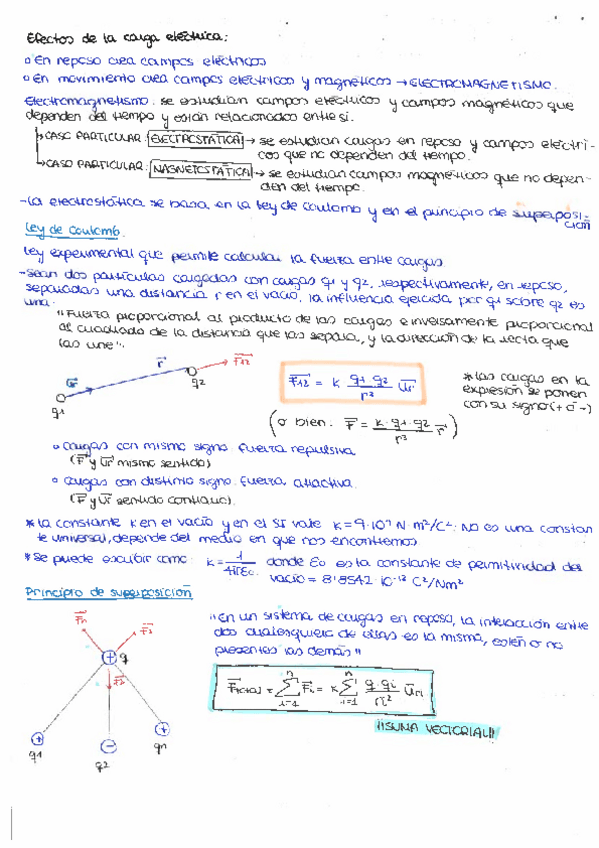 Efectos de la carga eléctrica:
▫ En reposo crea campos eléctricos
▫ En movimiento crea campos eléctricos y magnéticos → ELECTROMAGNETISMO.
Electromagnetismo: se estudian campos eléctricos y campos magnéticos que
dependen del tiempo y están relacionados entre si.
↳ CASO PARTICULAR: ELECTROSTÁTICA → se estudian cargas en reposo y campos eléctri-
cos que no dependen del tiempo.
↳ CASO PARTICULAR: MAGNETOSTÁTICA → se estudian campos magnéticos que no depen-
den del tiempo.
- La electrostática se basa en la ley de coulomb y en el principio de superposi-
ción
Ley de Coulomb.
Ley experimental que permite calcular la fuerza entre cargas
- Sean dos partículas cargadas con cargas q1 y q2, respectivamente, en reposo,
separadas una distancia r en el vacío, la influencia ejercida por q1 sobre q2 es
una:
"Fuerza proporcional al producto de las cargas e inversamente proporcional
al cuadrado de la distancia que las separa, y la dirección de la recta que
las une".
q1 ūr r⃗ q2 F⃗12
F⃗12 = k q1 q2 / r² ūr
* Las cargas en la
expresión se ponen
con su signo (+ ó -)
(o bien: F⃗ = k·q1·q2 / r³ r⃗)
▫ cargas con mismo signo: fuerza repulsiva
(F⃗ y ūr mismo sentido)
▫ cargas con distinto signo: fuerza atractiva.
(F⃗ y ūr sentido contrario).
* La constante k en el vacío y en el SI vale k=9·10⁹ N·m²/C². No es una constan
te universal, depende del medio en que nos encontremos
* Se puede escribir como: k = 1 / 4πε0 donde ε0 es la constante de permitividad del
vacío = 8'8542·10⁻¹² C²/Nm²
Principio de superposición
F⃗n F⃗1 q F⃗2 q1 q2 qn
"En un sistema de cargas en reposo, la interacción entre
dos cualesquiera de ellas es la misma, estén o no
presentes las demás"
F⃗total = Σ(i=1, n) F⃗i = k Σ(i=1, n) q·qi / ri² ūri
¡¡SUMA VECTORIAL!!